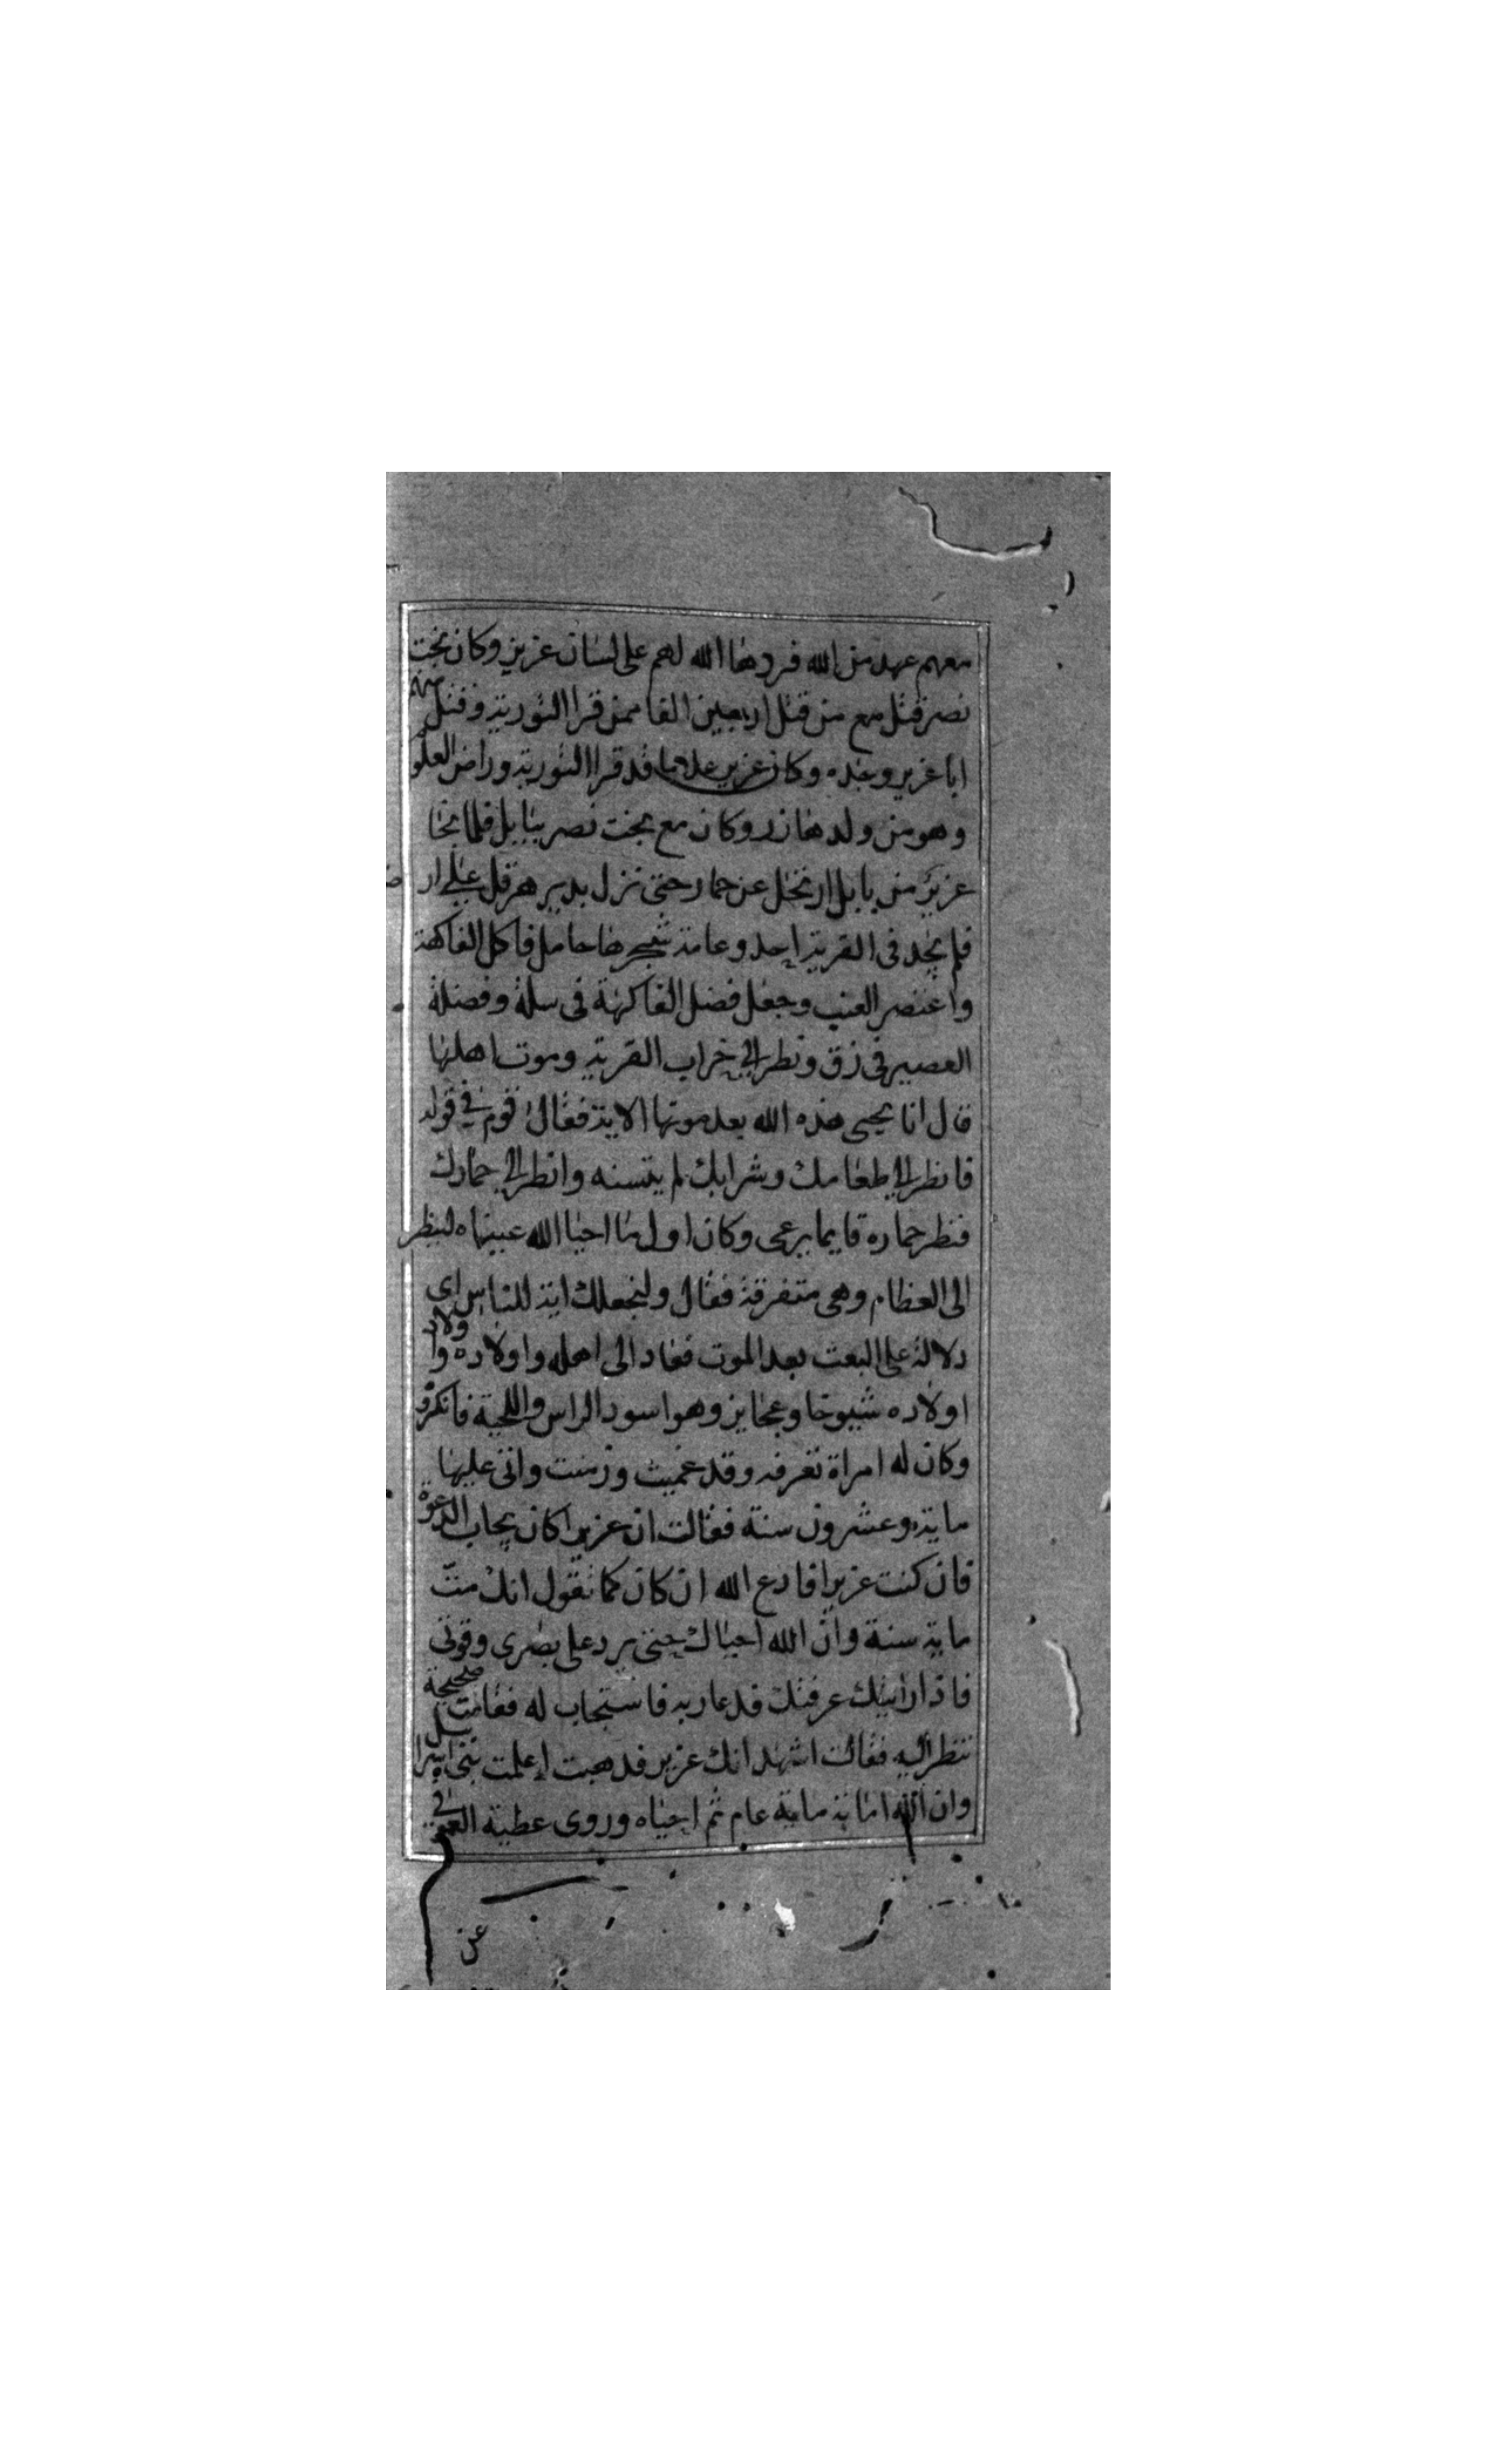 معهم عهد من الله فردها الله لهم على لسان عزير وكان بخت
نصر قتل مع من قتل اربعين الفا ممن قرا التورية وقتل منهم
ابا عزير وجده وكان عزير غلاما قد قرا التورية وراض العلو
وهو من ولد هازر وكان مع بخت نصر ببابل فلما نجا
عزير من بابل ارتحل عن حمار حتى نزل بدير هرقل على
فلم يجد فى القرية احد وعامة شجرها حامل فاكل الفاكهة
واعتصر العنب وجعل فضل الفاكهة فى سلة وفضلة
العصير فى زق ونظر الى خراب القرية وموت اهلها
قال انا يحيى هذه الله بعد موتها الاية فقال قوم فى قوله
فانظر الى طعامك وشرابك لم يتسنه وانظر الى حمارك
فنظر حماره قايما يرعى وكان اول ما احيا الله عينياه لينظر
الى العظام وهى متفرقة فقال ولنجعلك اية للناس اى
دلالة على البعث بعد الموت فعاد الى اهله واولاده واولاد
اولاده شيوخا وعجايز وهو اسود الراس واللحية فانكره
وكان له امراة تعرفه وقد عميت وزمنت واتى عليها
ماية وعشرون سنة فقالت ان عزيرا كان يجاب الدعوة
فان كنت عزيرا فادع الله ان كان كما تقول انك مت
ماية سنة وان الله احياك حتى يرد على بصرى وقوتى
فاذا رايتك عرفتك فدعا ربه فاستجاب له فقامت صحيحة
تنظر اليه فقالت اشهد انك عزير فذهبت اعلمت بنى اسرايل
وان الله اماته ماية عام ثم احياه وروى عطية العوفى
عن